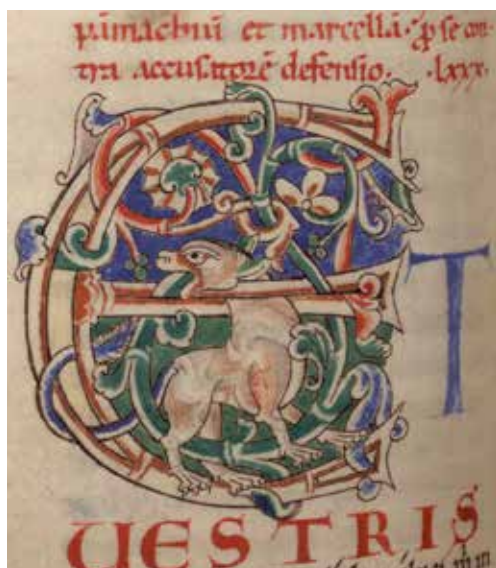 pāmachiū et marcellā. ꝓ se con-
tra accusatorē defensio. .lxxx.
E T
UESTRIS